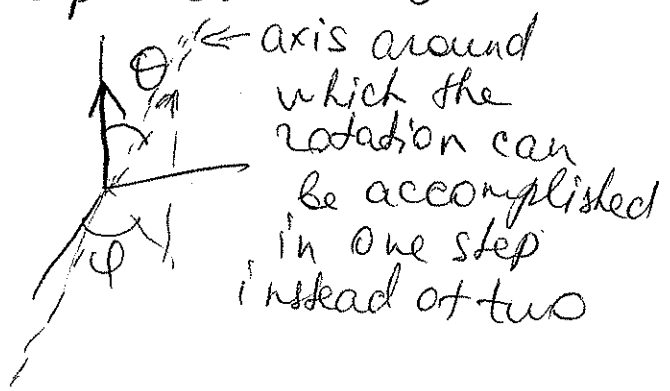 θ ← axis around
which the
rotation can
be accomplished
in one step
φ
instead of two